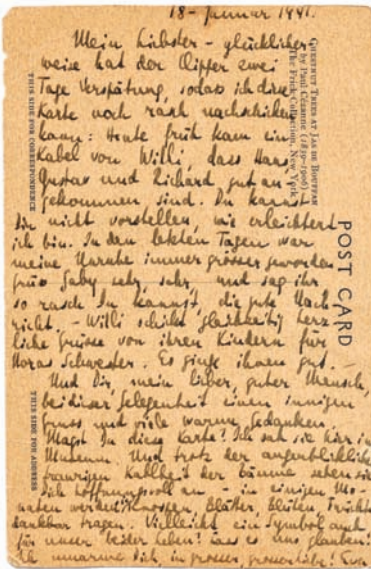 18. Januar 1941.
Mein Liebster - glücklicher-
weise hat der Clipper zwei
Tage Verspätung, sodass ich diese
Karte noch rasch nachschicken
kann: Heute früh kam ein
Kabel von Willi, dass Hans,
Gustav und Richard gut an-
gekommen sind. Du kannst
Dir nicht vorstellen, wie erleichtert
ich bin. In den letzten Tagen war
meine Unruhe immer grösser geworden.
Grüss Gaby sehr, sehr, und sag ihr
so rasch Du kannst, die gute Nach-
richt. - Willi schickt gleichzeitig herz-
liche Grüsse von ihren Kindern für
Noras Schwester. Es ginge ihnen gut. -
Und Dir, mein lieber, guter Mensch,
bei dieser Gelegenheit einen innigen
Gruss und viele warme Gedanken.
Magst Du diese Karte? Ich sah sie hier im
Museum. Und trotz der augenblicklich
traurigen Kahlheit der Bäume sehen sie
sich hoffnungsvoll an - in einigen Mo-
naten werden Knospen, Blätter, Blüten, Früchte
dankbar tragen. Vielleicht ein Symbol auch
für unser beider Leben? Lass es uns glauben!
Ich umarme Dich, in grosser, grosser Liebe! Eva
CHESTNUT TREES AT JAS DE BOUFFAN
by Paul Cézanne (1839-1906)
The Frick Collection, New York
POST CARD
THIS SIDE FOR CORRESPONDENCE
THIS SIDE FOR ADDRESS